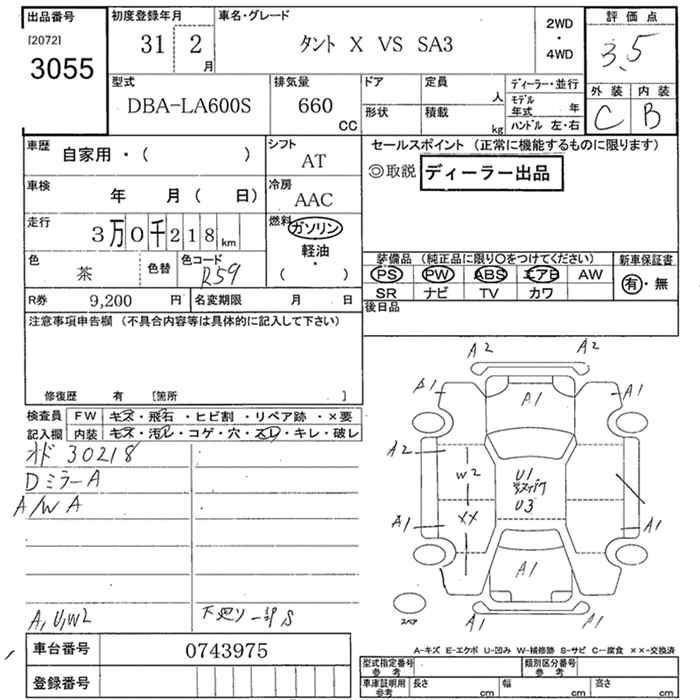 出品番号
[2072]
3055
初度登録年月
31 2
月
車名・グレード
タント X VS SA3
2WD
・
4WD
評価点
3.5
外装 内装
C B
型式
DBA-LA600S
排気量
660
CC
ドア
定員
人
形状
積載
kg
ディーラー・並行
モデル年式 年
ハンドル 左・右
車歴
自家用・( )
シフト
AT
車検
年 月( 日)
冷房
AAC
走行
3万0千218km
燃料
ガソリン
軽油・
( )
色
茶
色替
色コード
R59
R券 9,200 円
名変期限 月 日
セールスポイント (正常に機能するものに限ります)
◎取説 ディーラー出品
装備品 (純正品に限り○をつけてください)
PS PW ABS エアB AW
SR ナビ TV カワ
新車保証書
有・無
後日品
注意事項申告欄 (不具合内容等は具体的に記入して下さい)
修復歴 有 [箇所 ]
検査員
記入欄
FW キズ・飛石・ヒビ割・リペア跡・×要
内装 キズ・汚レ・コゲ・穴・スレ・キレ・破レ
オド 30218
DミラーA
A/W A
A,U,W2
下廻り一部S
A2 A2
A1 A1
A1
A2
W2
U1
U3
XX
A1 A1
A1
A1 A1
スペア
A-キズ E-エクボ U-凹み W-補修跡 S-サビ C-腐食 ××-交換済
車台番号 0743975
登録番号
型式指定番号
参考
類別区分番号
参考
車庫証明用
参考
長さ cm 幅 cm 高さ cm